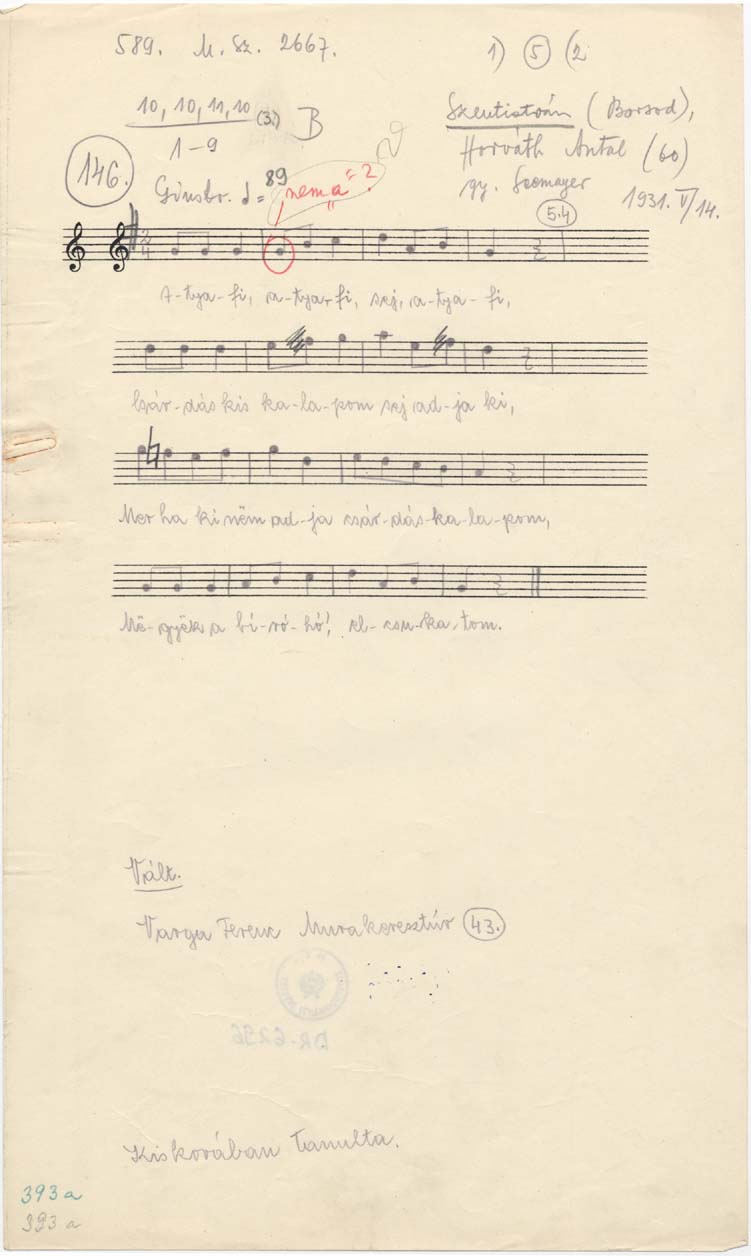 589. M. Sz. 2667. 1) 5 (2
10, 10, 11, 10 (3.) B Szentistván (Borsod),
1-9 Horváth Antal (60)
146. 89 „nem a"? gy. Szomayer
1931. V/14.
5.4
2
4
A-tya-fi, a-tya-fi, sej, a-tya-fi,
Csár-dás kis ka-la-pom sej, ad-ja ki,
Mer ha ki nëm ad-ja csár-dás ka-la-pom,
Më-gyëk a bí-ró-hó', el-csu-ka-tom.
Vált.
Varga Ferenc Murakeresztúr 43.
DR-6296
Kiskorában tanulta.
393a
393a